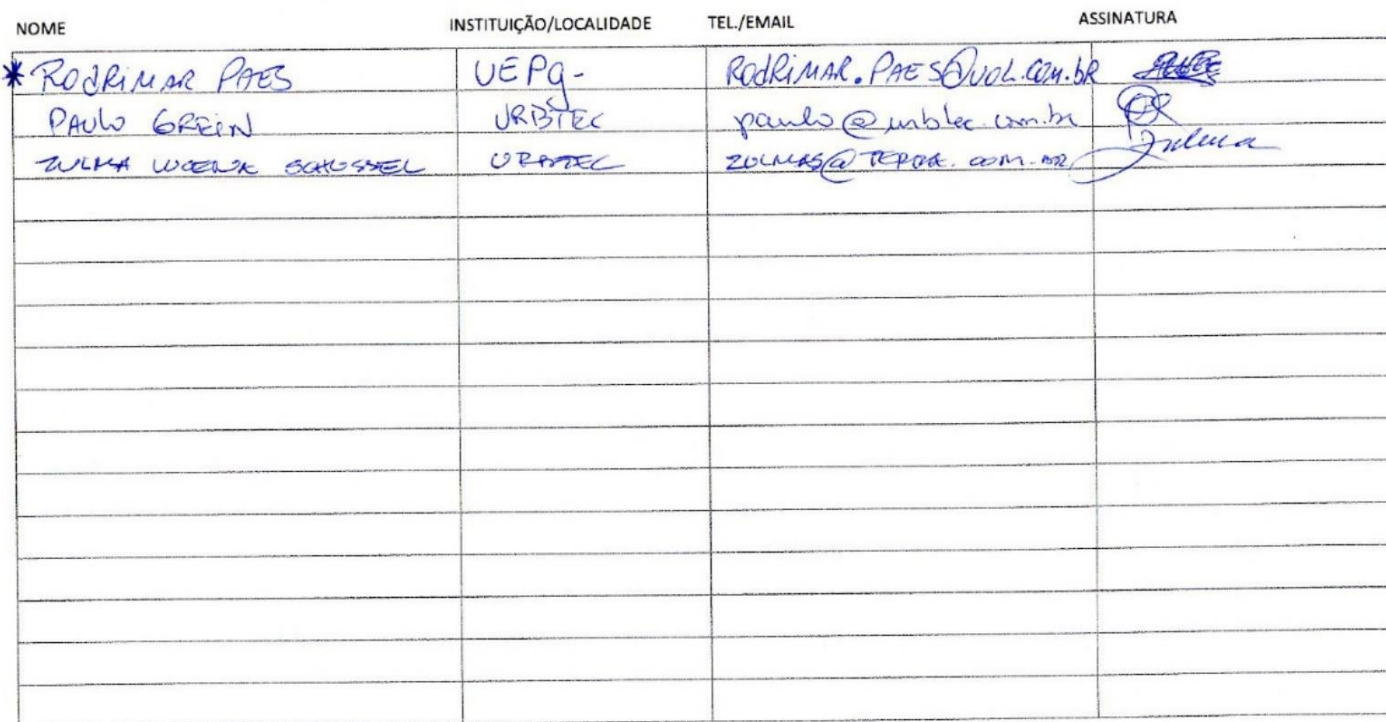 NOME INSTITUIÇÃO/LOCALIDADE TEL./EMAIL ASSINATURA
* RODRIMAR PAES UEPG- RODRIMAR.PAES@UOL.COM.BR
PAULO GREIN URBTEC paulo@urbtec.com.br
ZULMA LUCENA SCHUSSEL URBTEC ZULMAS@TERRA.COM.BR Zulma